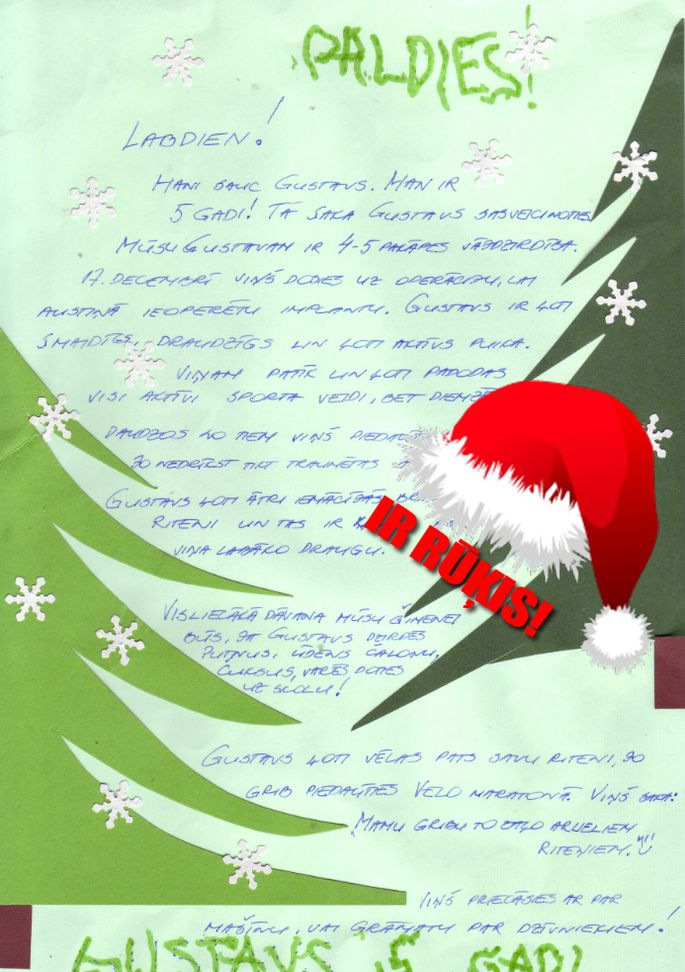 PALDIES!
LABDIEN!
MANI SAUC GUSTAVS. MAN IR
5 GADI! TĀ SAKA GUSTAVS SASVEICINOTIES.
MŪSU GUSTAVAM IR 4-5 PAKĀPES VĀJDZIRDĪBA.
17. DECEMBRĪ VIŅŠ DODAS UZ OPERĀCIJU, LAI
AUSTIŅĀ IEOPERĒTU IMPLANTU. GUSTAVS IR ĻOTI
SMAIDĪGS, DRAUDZĪGS UN ĻOTI AKTĪVS PUIKA.
VIŅAM PATĪK UN ĻOTI PADODAS
VISI AKTĪVI SPORTA VEIDI, BET DIEMŽĒL
DAUDZOS NO TIEM VIŅŠ
JO NEDRĪKST TIKT TRAUMĒTAS
GUSTAVS ĻOTI ĀTRI IEMĀCĪJĀS
RITENI UN TAS IR
VIŅA LABĀKO DRAUGU.
IR RŪĶIS!
VISLIELĀKĀ DĀVANA MŪSU ĢIMENEI
BŪS, JA GUSTAVS DZIRDĒS
PUTNUS, ŪDENS ČALOŅU,
ČUKSUS, VARĒS DOTIES
UZ SKOLU!
GUSTAVS ĻOTI VĒLAS PATS SAVU RITENI, JO
GRIB PIEDALĪTIES VELO MARATONĀ. VIŅŠ SAKA:
"MAMU GRIBU TO ZAĻO AR LIELIEM
RITEŅIEM."
VIŅŠ PRIECĀSIES AR PAR
MAŠĪNU, VAI GRĀMATU PAR DZĪVNIEKIEM!
GUSTAVS 5 GADI